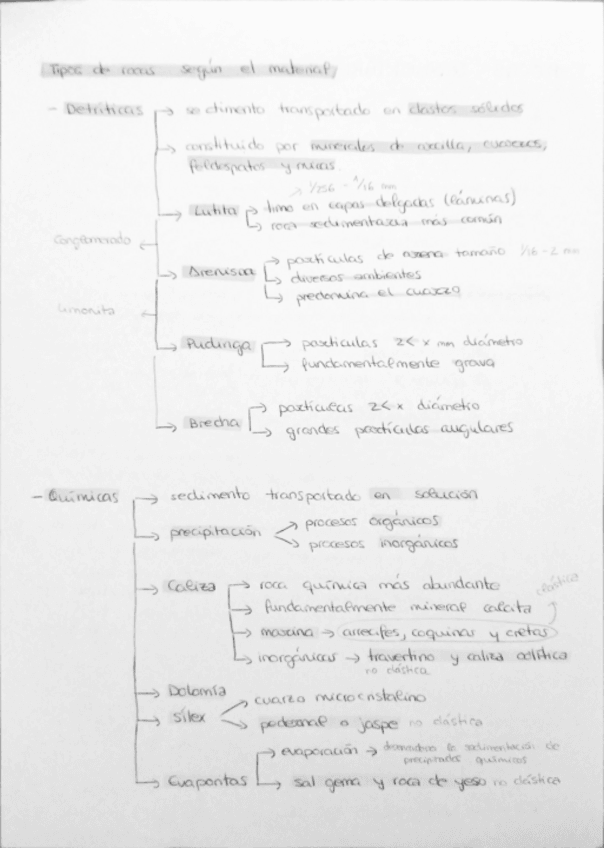 Tipos de rocas según el material,
- Detríticas → sedimento transportado en clastos sólidos
→ constituido por minerales de arcilla, cuarzos,
feldespatos y micas.
1/256 - 1/16 mm
→ Lutita → limo en capas delgadas (láminas)
→ roca sedimentaria más común
Conglomerado
→ Arenisca → partículas de arena tamaño 1/16 - 2 mm
→ diversos ambientes
→ predomina el cuarzo
Limonita
→ Pudinga → partículas 2< x mm diámetro
→ fundamentalmente grava
→ Brecha → partículas 2< x diámetro
→ grandes partículas angulares
- Químicas → sedimento transportado en solución
→ precipitación → procesos orgánicos
→ procesos inorgánicos
→ Caliza → roca química más abundante
clástica
→ fundamentalmente mineral calcita
→ marina → arrecifes, coquinas y cretas
→ inorgánicas → travertino y caliza oolítica
no clástica
→ Dolomía
→ Sílex → cuarzo microcristalino
→ pedernal o jaspe no clástica
→ Evaporitas → evaporación → sedimentación de
precipitados químicos
→ sal gema y roca de yeso no clástica